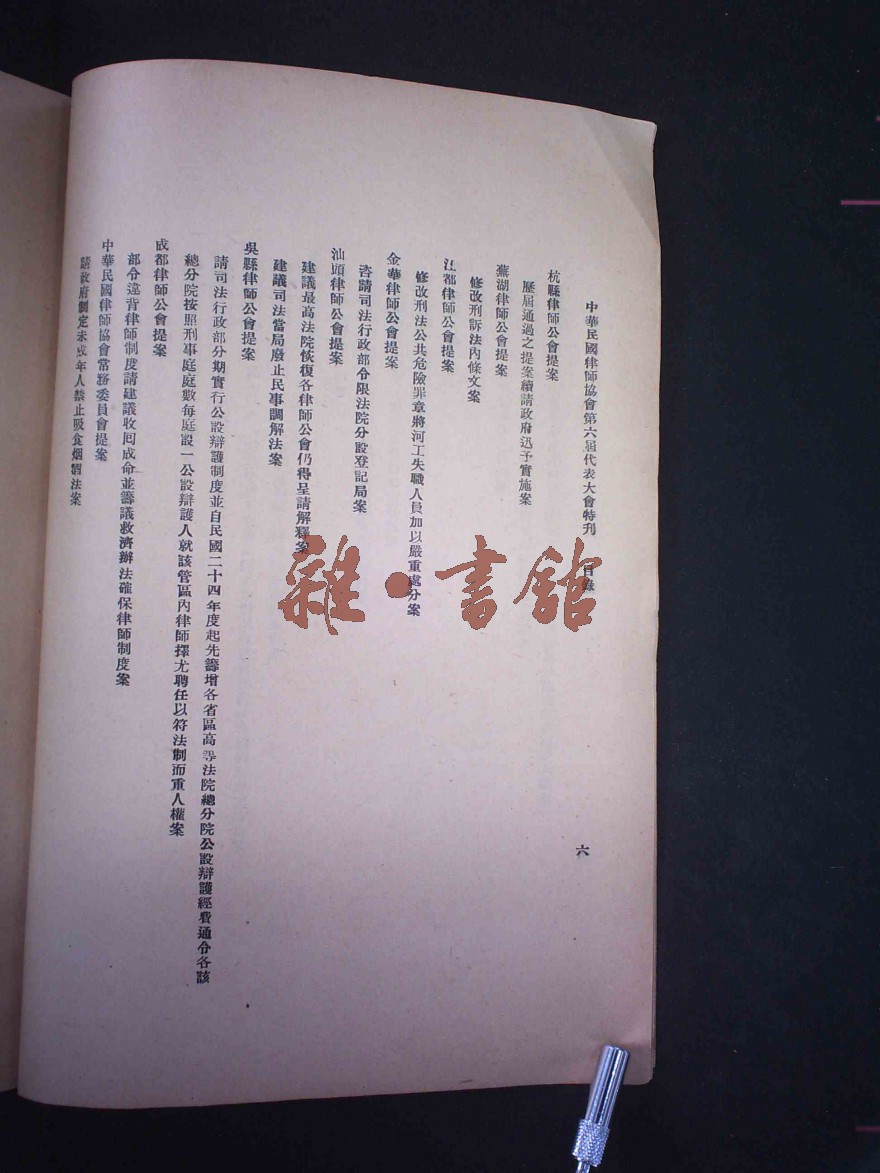 中華民國律師協會第六屆代表大會特刊 目錄
六
杭縣律師公會提案
歷屆通過之提案續請政府迅予實施案
蕪湖律師公會提案
修改刑訴法內條文案
江都律師公會提案
修改刑法公共危險罪章將河工失職人員加以嚴重處分案
金華律師公會提案
咨請司法行政部令限法院分設登記局案
汕頭律師公會提案
建議最高法院恢復各律師公會仍得呈請解釋案
建議司法當局廢止民事調解法案
吳縣律師公會提案
請司法行政部分期實行公設辯護制度並自民國二十四年度起先籌增各省區高等法院總分院公設辯護經費通令各該
總分院按照刑事庭庭數每庭設一公設辯護人就該管區內律師擇尤聘任以符法制而重人權案
成都律師公會提案
部令違背律師制度請建議收回成命並籌議救濟辦法確保律師制度案
中華民國律師協會常務委員會提案
請政府制定未成年人禁止吸食烟酒法案
雜·書館